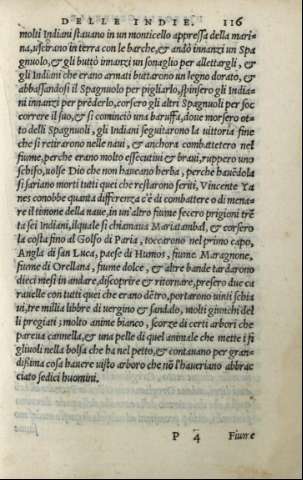 DELLE INDIE. 116
molti Indiani stauano in un monticello appressa della mari-
na, uscirono in terra con le barche, & andò innanzi un Spa
gnuolo, & gli buttò innanzi un sonaglio per allettargli, &
gli Indiani che erano armati buttarono un legno dorato, &
abbassandosi il Spagnuolo per pigliarlo, spinsero gli India-
ni innanzi per prēderlo, corsero gli altri Spagnuoli per soc
correre il suo, & si cominciò una baruffa, doue morsero ot-
to delli Spagnuoli, gli Indiani seguitarono la uittoria fine
che si retirarono nelle naui, & anchora combattetero nel
fiume, perche erano molto essecutiui & braui, ruppero uno
schifo, uolse Dio che non haueano herba, perche hauēdola
si sariano morti tutti quei che restarono feriti, Vincente Ya
nes conobbe quanta differenza c'è di combattere o di mena-
re il timone della naue, in un'altro fiume fecero prigioni trē
ta sei Indiani, ilquale si chiamaua Mariatambal, & corsero
la costa fino al Golfo di Paria, toccarono nel primo capo,
Angla di san Luca, paese di Humos, fiume Maragnone,
fiume di Orellana, fiume dolce, & altre bande tardarono
dieci mesi in andare, discoprire & ritornare, presero due ca
rauelle con tutti quei che erano dētro, portarono uinti schia
ui, tre milia libbre di uergino & sandalo, molti giunchi del
li pregiati; molto anime bianco, scorze di certi arbori che
pareua cannella, & una pelle di quel animale che mette i fi
gliuoli nella bolsa che ha nel petto, & contauano per gran-
dissima cosa hauere uisto arboro che nō l'haueriano abbrac
ciato sedici huomini.
P 4 Fiume